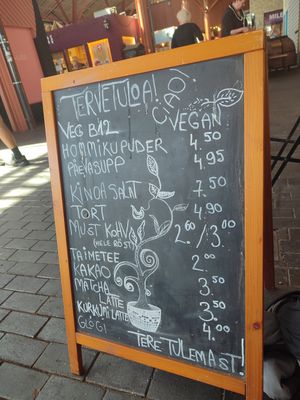 TERVETULOA!
CIAO!
VEG BAR VEGAN
HOMMIKUPUDER 4.50
PÄEVASUPP 4.95
KINOA SALAT 7.50
TORT 4.90
MUST KOHV 2.00/3.00
(HELE RÖST)
TAIMETEE 2.00
KAKAO 3.50
MATCHA LATTE 3.50
KURKUMI LATTE 4.00
GLÖGI
TERE TULEMAST!